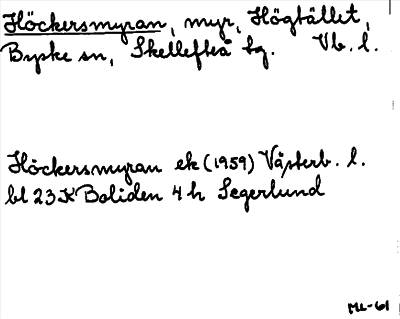 Höckersmyran, myr, Högtället,
Byske sn, Skellefteå tg. Vb. l.
Höckersmyran ek (1959) Västerb. l.
bl 23 K Boliden 4 h Segerlund
ML-61